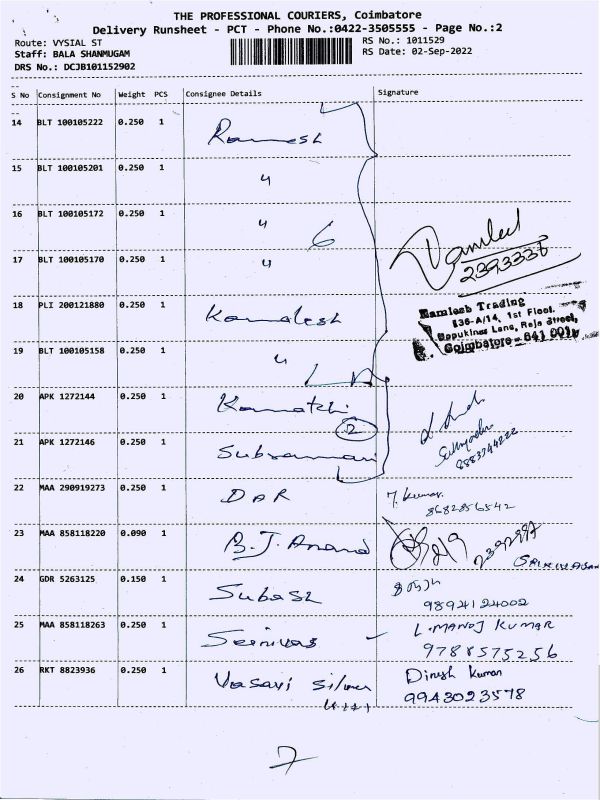 THE PROFESSIONAL COURIERS, Coimbatore
Delivery Runsheet - PCT - Phone No.:0422-3505555 - Page No.:2
Route: VYSIAL ST RS No.: 1011529
Staff: BALA SHANMUGAM RS Date: 02-Sep-2022
DRS No.: DCJB101152902
S No Consignment No Weight PCS Consignee Details Signature
14 BLT 100105222 0.250 1 Ramesh
15 BLT 100105201 0.250 1 "
16 BLT 100105172 0.250 1 "
6
17 BLT 100105170 0.250 1 "
2393336
18 PLI 200121880 0.250 1 Kamalesh
Kamlesh Trading
136-A/14, 1st Floor,
Uppukinar Lane, Raja Street,
Coimbatore - 641 001.
19 BLT 100105158 0.250 1 "
20 APK 1272144 0.250 1 Kamatchi
2
21 APK 1272146 0.250 1 Subramani
8883794222
22 MAA 290919273 0.250 1 DAR J. Kumar.
8682856542
23 MAA 858118220 0.090 1 B.J. Anand
SRINIVASAN
24 GDR 5263125 0.150 1 Subash
9894124002
25 MAA 858118263 0.250 1 Srinivas L. MANOJ KUMAR
9788575256
26 RKT 8823936 0.250 1 Vasavi Silver Dinesh Kumar
9943023578
7